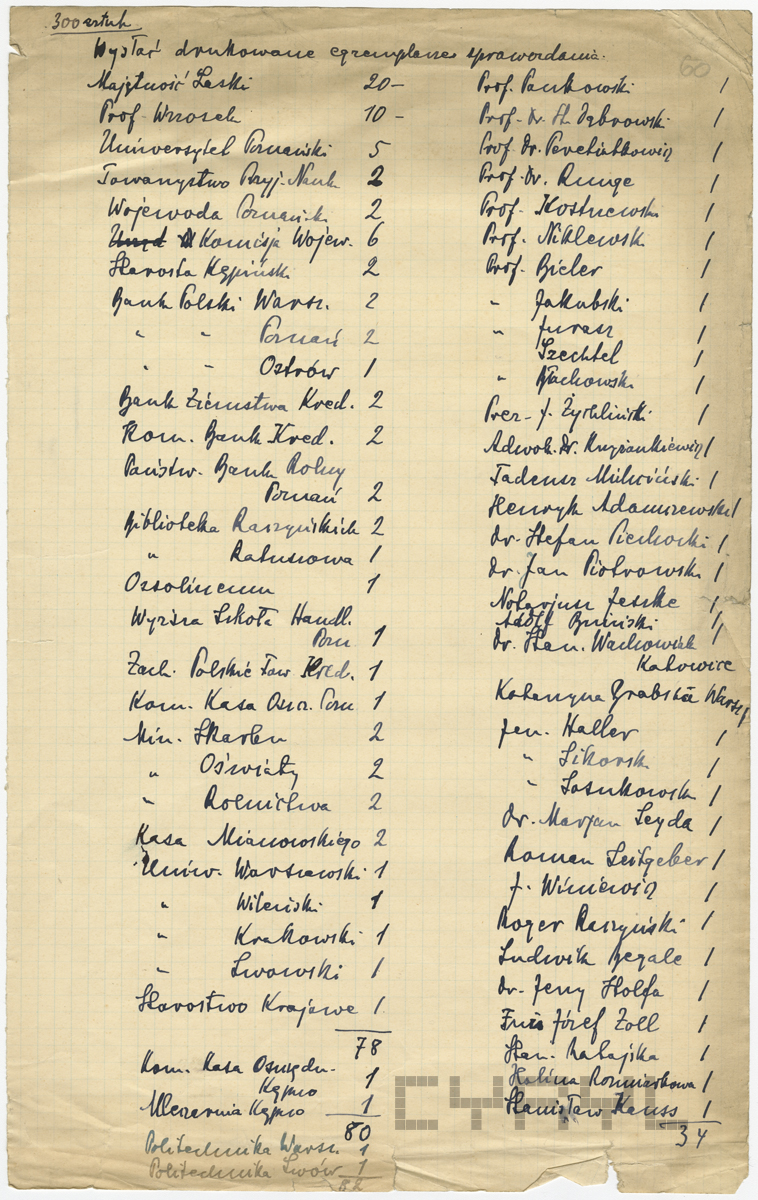 300 sztuk
60
Wysłać drukowane egzemplarze sprawozdania.
Majętność Laski 20-
Prof. Wrzosek 10-
Uniwersytet Poznański 5
Towarzystwo Przyj. Nauk 2
Wojewoda Poznański 2
Urząd Komisja Wojew. 6
Starosta Kępiński 2
Bank Polski Warsz. 2
" " Poznań 2
" " Ostrów 1
Bank Ziemstwa Kred. 2
Kom. Bank Kred. 2
Państw. Bank Rolny
Poznań 2
Biblioteka Raczyńskich 2
" Ratuszowa 1
Ossolineum 1
Wyższa Szkoła Handl.
Pozn 1
Zach. Polskie Tow Kred. 1
Kom. Kasa Oszcz. Pozn 1
Min. Skarbu 2
" Oświaty 2
" Rolnictwa 2
Kasa Mianowskiego 2
Uniw. Warszawski 1
" Wileński 1
" Krakowski 1
" Lwowski 1
Starostwo Krajowe 1
78
Kom. Kasa Oszczędn.
Kępno 1
Mleczarnia Kępno 1
80
Politechnika Warsz. 1
Politechnika Lwów 1
82
Prof. Pankowski 1
Prof. Dr. St. Dąbrowski 1
Prof. Dr. Peretiatkowicz 1
Prof. Dr. Runge 1
Prof. Kostrzewski 1
Prof. Niklewski 1
Prof. Bieler 1
" Jakubski 1
" Jurasz 1
Szechtel 1
" Błachowski 1
Prez. J. Żychliński 1
Adwok. Dr. 1
Tadeusz 1
Henryk Adamczewski 1
dr. Stefan Piechocki 1
dr. Jan Piotrowski 1
Notarjusz Jeszke 1
Adolf Bniński 1
dr. Stan. Wachowiak 1
Katowice
Katarzyna Grabska Warsz 1
Jen. Haller 1
" Sikorski 1
" Sosnkowski 1
dr. Marjan Seyda 1
Roman Leitgeber 1
J. Winiewicz 1
Roger Raczyński 1
Ludwik Begale 1
dr. Jerzy Stolfa 1
Józef Zoll 1
Stan. Ratajska 1
Halina 1
Stanisław Kauss 1
34
CYRYL